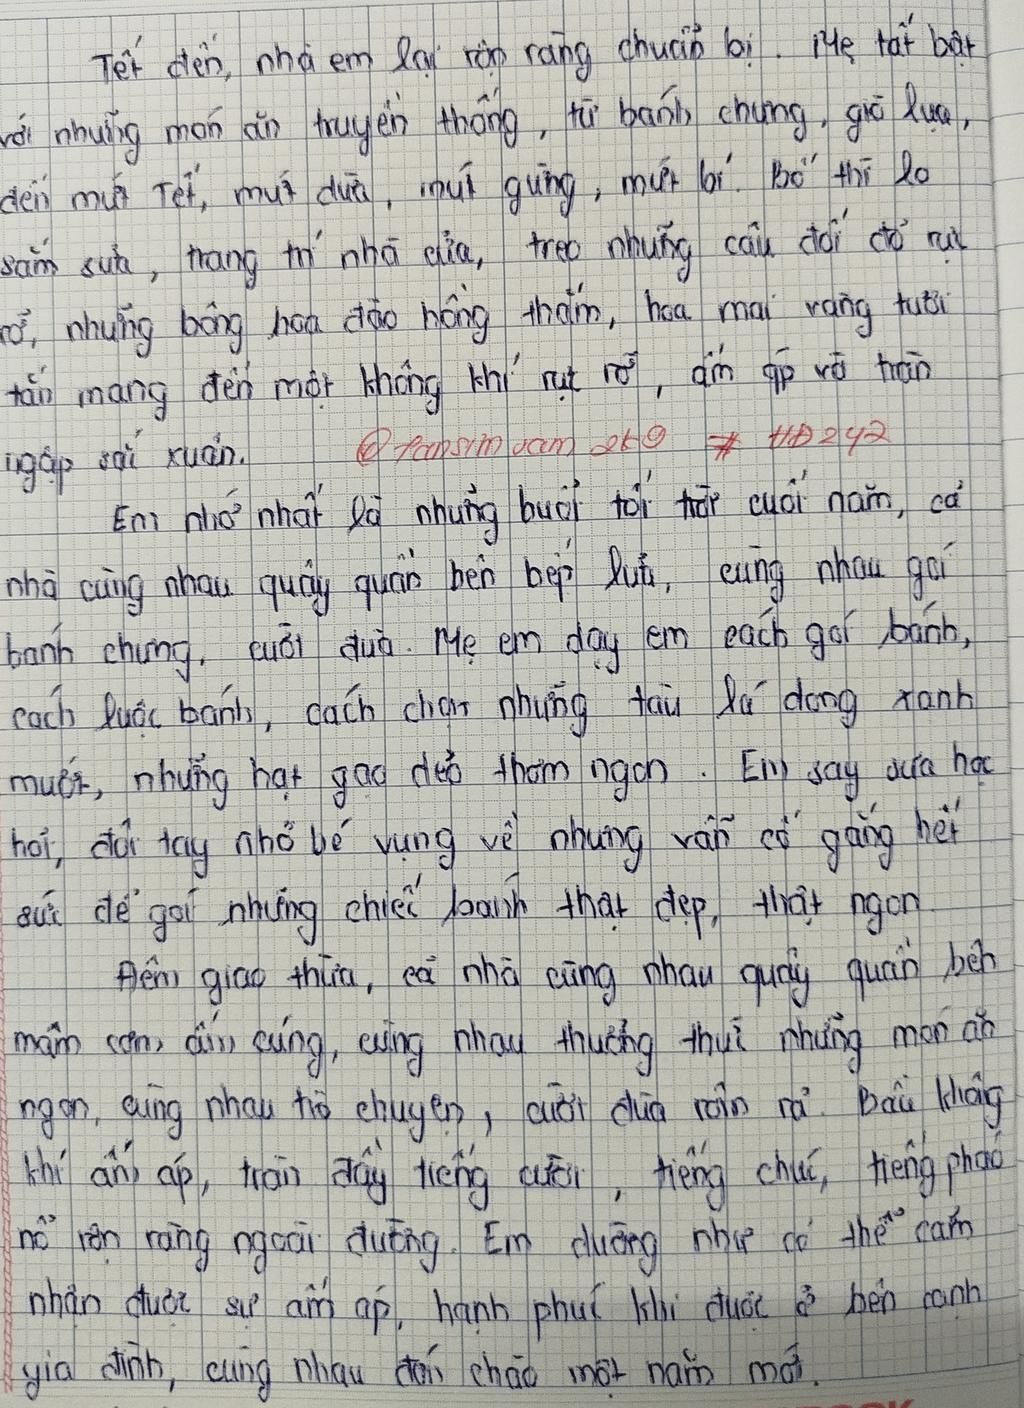 Tết đến, nhà em lại rộn ràng chuẩn bị. Mẹ tất bật
với những món ăn truyền thống, từ bánh chưng, giò lụa,
đến mứt Tết, mứt dừa, mứt gừng, mứt bí. Bố thì lo
sắm sửa, trang trí nhà cửa, treo những câu đối đỏ rực
rỡ, những bông hoa đào hồng thắm, hoa mai vàng tươi
tắn mang đến một không khí rực rỡ, ấm áp và tràn
ngập sắc xuân. #HD242
Em nhớ nhất là những buổi tối trời cuối năm, cả
nhà cùng nhau quây quần bên bếp lửa, cùng nhau gói
bánh chưng, cười đùa. Mẹ em dạy em cách gói bánh,
cách luộc bánh, cách chọn những tàu lá dong xanh
mướt, những hạt gạo dẻo thơm ngon. Em say sưa học
hỏi, đôi tay nhỏ bé vụng về nhưng vẫn cố gắng hết
sức để gói những chiếc bánh thật đẹp, thật ngon
Đêm giao thừa, cả nhà cùng nhau quây quần bên
mâm cơm cúng, cùng nhau thưởng thức những món ăn
ngon, cùng nhau trò chuyện, cười đùa rôm rả. Bầu không
khí ấm áp, tràn đầy tiếng cười, tiếng chúc, tiếng pháo
nổ rộn ràng ngoài đường. Em dường như có thể cảm
nhận được sự ấm áp, hạnh phúc khi được ở bên cạnh
gia đình, cùng nhau đón chào một năm mới.